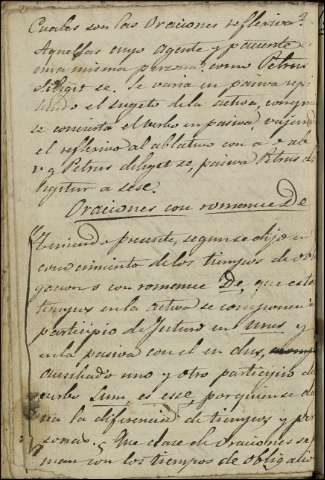 Cuales son las Oraciones reflexivas?
Aquellas cuyo agente y paciente es
una misma persona: como Petrus
diligit se. Se varia en pasiva repi
tiendo el sugeto de la activa, con quien
se concierta el verbo en pasiva, vajando
el reflexivo al ablativo con a o ab
v g Petrus diligit se, pasiva Petrus di
ligitur a sese.
Oraciones con romance De
Teniendo presente, segun se dijo en
conocimiento de los tiempos de obli
gacion o con romance De, que estos
tiempos en la activa se componen
participio de futuro en urus, y
en la pasiva con el en dus,
auxiliado uno y otro participio del
verbo Sum, es esse, por quien se
ria la diferencia de tiempos y per
sonas. Que clase de Oraciones se
man con los tiempos de obligacio